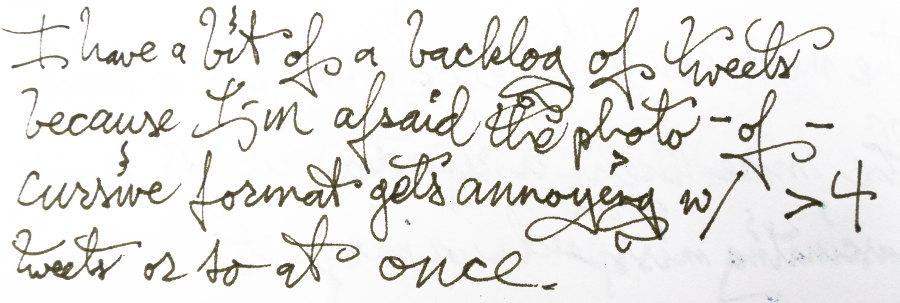 I have a bit of a backlog of tweets
because I'm afraid the photo-of-
cursive format gets annoying w/ >4
tweets or so at once.